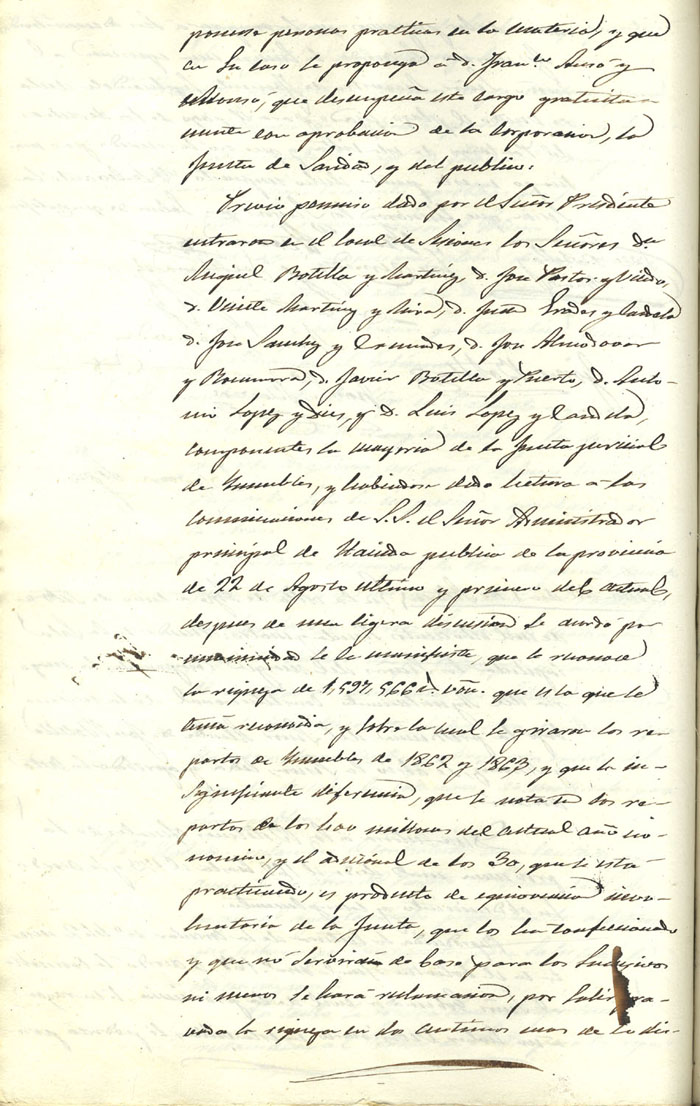 ponerse personas practicas en la materia, y que
en su caso le proponga a D. Fran.co Ausó y
Alonso, que desempeña este cargo gratuita-
mente con aprobacion de la Corporacion, la
Junta de Sanidad, y del publico.
Previo permiso dado por el Señor Presidente
entraron en el local de Sesiones los Señores Dn
Miguel Botella y Martinez, D. Jose Pastor y
D. Vicente Martinez y Mira, D. Juan y Candela
D. Jose Sanchez y D. Jose Almodovar
y Rocamora, D. Javier Botella y Puerto, D. Anto-
nio Lopez y Dies, y D. Luis Lopez y Candela,
componentes la mayoria de la Junta pericial
de Inmuebles, y habiendose dado lectura a las
comunicaciones de S.S. el Señor Administrador
principal de Hacienda publica de la provincia
de 22 de Agosto ultimo y primero del actual,
despues de una ligera discusion se acordo por
unanimidad se le manifieste, que se reconoce
la riqueza de 1,597,566 rs. von. que es la que se
tenia reconocida, y sobre la cual se giraron los re-
partos de Inmuebles de 1862 y 1863, y que la in-
significante diferencia, que se nota en los re-
partos de los 400 millones del actual año eco-
nomico, y el adicional de los 30, que se está
practicando, es producto de equivocacion invo-
luntaria de la Junta, que los ha confeccionado
y que no servirán de base para los sucesivos
ni menos se hará reclamacion, por salir gra-
vada la riqueza en dos centimos mas de lo dis-